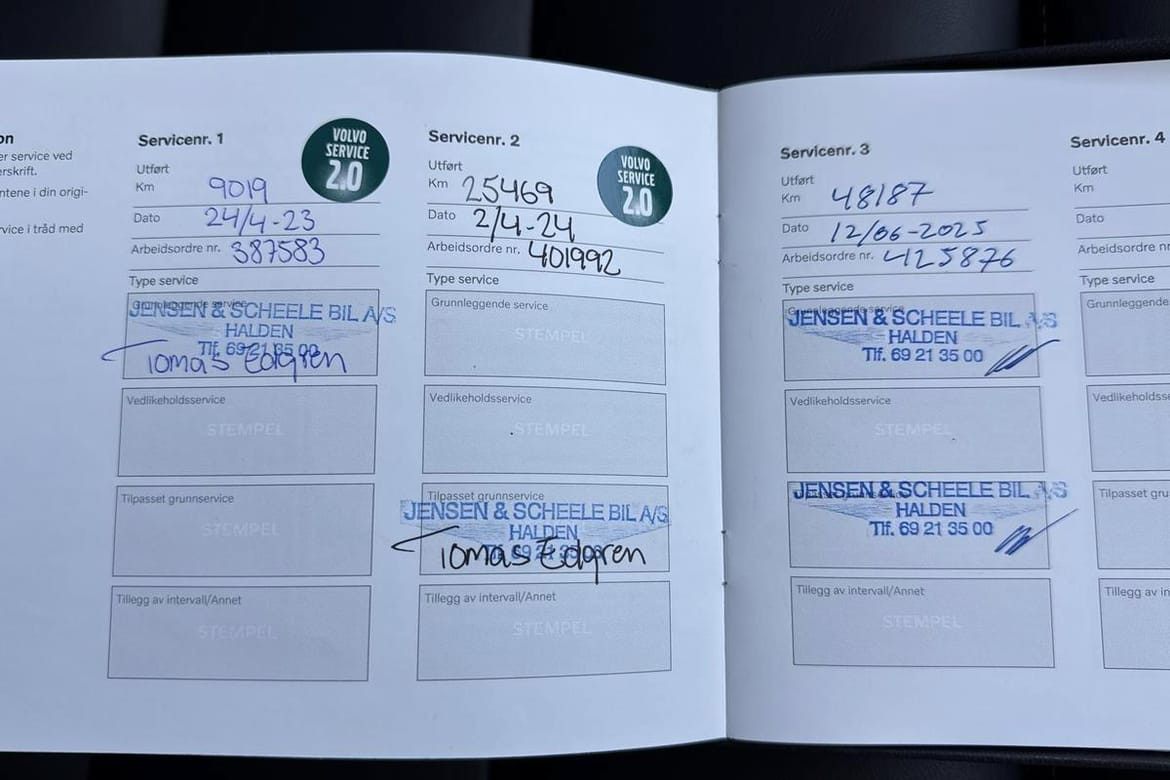 on
er service ved
erskrift.
ntene i din origi-
rvice i tråd med
Servicenr. 1
VOLVO
SERVICE
2.0
Utført
Km 9019
Dato 24/4-23
Arbeidsordre nr. 387583
Type service
Grunnleggende service
JENSEN & SCHEELE BIL A/S
HALDEN
Tlf. 69 21 35 00
Tomas Edgren
Vedlikeholdsservice
STEMPEL
Tilpasset grunnservice
STEMPEL
Tillegg av intervall/Annet
STEMPEL
Servicenr. 2
VOLVO
SERVICE
2.0
Utført
Km 25469
Dato 2/4-24
Arbeidsordre nr. 401992
Type service
Grunnleggende service
STEMPEL
Vedlikeholdsservice
STEMPEL
Tilpasset grunnservice
JENSEN & SCHEELE BIL A/S
HALDEN
Tlf. 69 21 35 00
Tomas Edgren
Tillegg av intervall/Annet
STEMPEL
Servicenr. 3
Utført
Km 48187
Dato 12/06-2025
Arbeidsordre nr. 425876
Type service
Grunnleggende service
JENSEN & SCHEELE BIL A/S
HALDEN
Tlf. 69 21 35 00
Vedlikeholdsservice
STEMPEL
JENSEN & SCHEELE BIL A/S
HALDEN
Tlf. 69 21 35 00
Tillegg av intervall/Annet
STEMPEL
Servicenr. 4
Utført
Km
Dato
Arbeidsordre nr
Type service
Grunnleggende
Vedlikeholdsse
Tilpasset gru
Tillegg av in